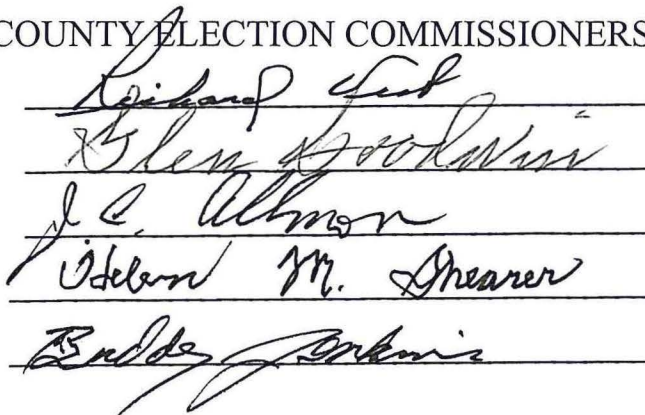 COUNTY ELECTION COMMISSIONERS
Richard
Glen Goodwin
J. C. Allmon
Helen M. Shearer
Buddy Jenkins